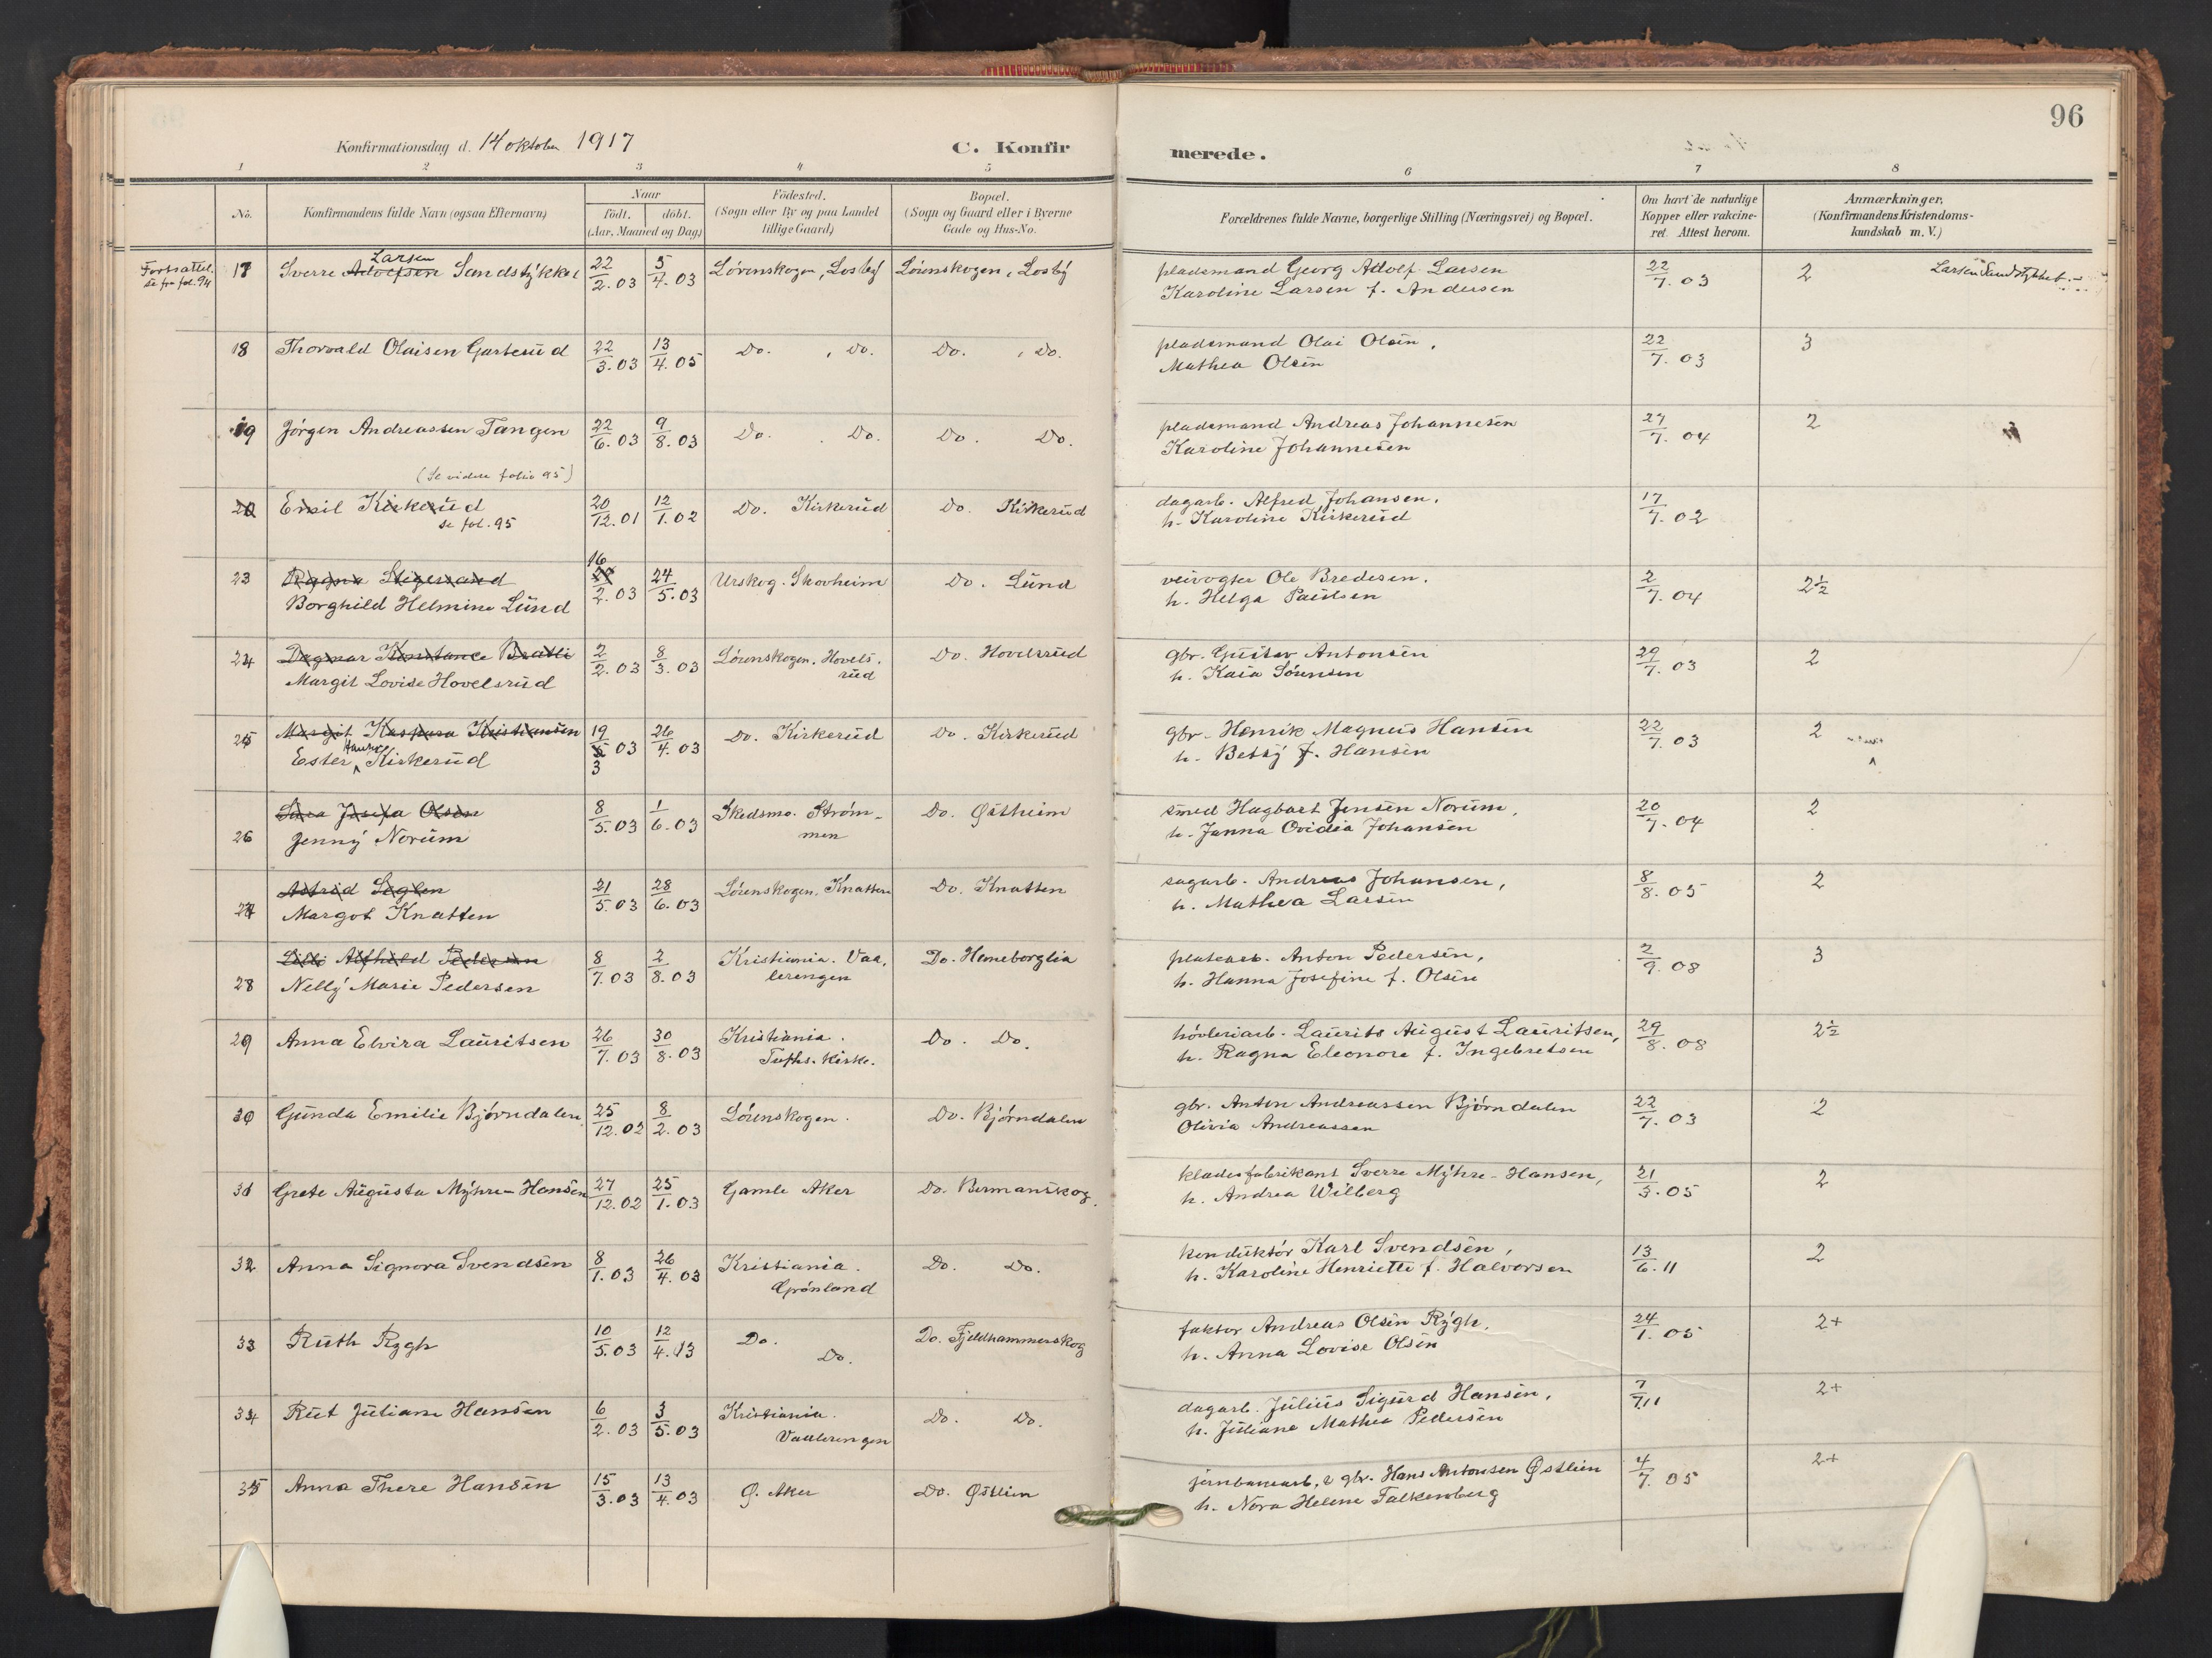 96
Konfirmationsdag d. 14 oktober 1917
C. Konfirmerede.
1 2 3 4 5 6 7 8
No.
Konfirmandens fulde Navn (ogsaa Efternavn)
Naar
födt. döbt.
(Aar, Maaned og Dag)
Födested.
(Sogn eller By og paa Landet
tillige Gaard)
Bopæl.
(Sogn og Gaard eller i Byerne
Gade og Hus-No.
Forældrenes fulde Navne, borgerlige Stilling (Næringsvei) og Bopæl.
Om havt de naturlige
Kopper eller vakcine-
ret. Attest herom.
Anmærkninger,
(Konfirmandens Kristendoms-
kundskab m. V.)
Fortsattet.
se fra fol. 94
Larsen
17 Sverre Adolfsen Sandstykket 22/2.03 5/4.03 Lørenskogen, Losby Lørenskogen, Losby pladsmand Georg Adolf Larsen 22/7.03 2 Larsen Sandstykket.-
Karoline Larsen f. Andersen
18 Thorvald Olaisen Gartesud 22/3.03 13/4.05 Do. , Do. Do. , Do. pladsmand Olai Olsen, 22/7.03 3
Mathea Olsen
19 Jørgen Andreassen Tangen 22/6.03 9/8.03 Do. . Do. Do. Do. pladsmand Andreas Johannesen 27/7.04 2
Karoline Johannesen
(Se videre folio 95)
20 Emil Kirkerud 20/12.01 12/1.02 Do. Kirkerud Do. Kirkerud dagarb. Alfred Johansen, 17/7.02
se fol. 95 h. Karoline Kirkerud
16
23 Ragna Stigersand 2.03 24/5.03 Urskog. Skovheim Do. Lund veivogter Ole Bredesen, 2/7.04 2½
Borghild Helmine Lund h. Helga Paulsen
24 Dagmar Konstance Bratli 2/2.03 8/3.03 Lørenskogen. Hovels- Do. Hovelsrud gbr. Gustav Antonsen 29/7.03 2
Margit Lovise Hovelsrud rud h. Kaia Sørensen
25 Margit Kaspara Kristiansen 19/3 03 26/4.03 Do. Kirkerud Do. Kirkerud gbr. Henrik Magnus Hansen 22/7.03 2
Ester Kirkerud h. Betsy f. Hansen
Josefa Olsen 8/5.03 1/6.03 Skedsmo. Strøm- Do. Østheim smed Hagbart Jensen Norum, 20/7.04 2
26 Jenny Norum men h. Janna Ovidia Johansen
Astrid Seglen 21/5.03 28/6.03 Lørenskogen. Knatten Do. Knatten sagarb. Andreas Johansen, 8/8.05 2
27 Margot Knatten h. Mathea Larsen
Alfhild Pedersen 8/7.03 2/8.03 Kristiania. Vaa- Do. Haneborglia platearb. Anton Pedersen, 2/9.08 3
28 Nelly Marie Pedersen lerengen h. Hanna Josefine f. Olsen
29 Anna Elvira Lauritsen 26/7.03 30/8.03 Kristiania. Do. Do. høvleriarb. Laurits August Lauritsen, 29/8.08 2½
Tøfts. Kirke. h. Ragna Eleonore f. Ingebretsen
30 Gunda Emilie Bjørndalen 25/12.02 8/2.03 Lørenskogen. Do. Bjørndalen gbr. Anton Andreassen Bjørndalen 22/7.03 2
Olivia Andreassen
31 Grete Augusta Myhre-Hansen 27/12.02 25/1.03 Gamle Aker Do. Bermanskog. kladesfabrikant Sverre Myhre-Hansen, 21/3.05 2
h. Andrea Wilberg
32 Anna Signora Svendsen 8/1.03 26/4.03 Kristiania. Do. Do. konduktør Karl Svendsen, 13/6.11 2
Grønland h. Karoline Henriette f. Halvorsen
33 Ruth Rygh 10/5.03 12/4.13 Do. Do. Fjeldhammerskog faktor Andreas Olsen Rygh, 24/1.05 2+
Do. h. Anna Lovise Olsen
34 Rut Juliane Hansen 6/2.03 3/5.03 Kristiania. Do. Do. dagarb. Julius Sigurd Hansen, 7/7.11 2+
Vaalerengen h. Juliane Mathea Pedersen
35 Anna There Hansen 15/3.03 13/4.03 Ø. Aker Do. Østlien jernbanearb. & gbr. Hans Antonsen Østlien 4/7.05 2+
h. Nora Helene Falkenberg